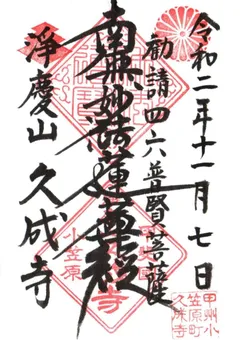 令和二年十一月七日
勧請四六普賢菩薩
南無妙法蓮華経
浄慶山 久成寺
甲州小
笠原町
久成寺
小笠原